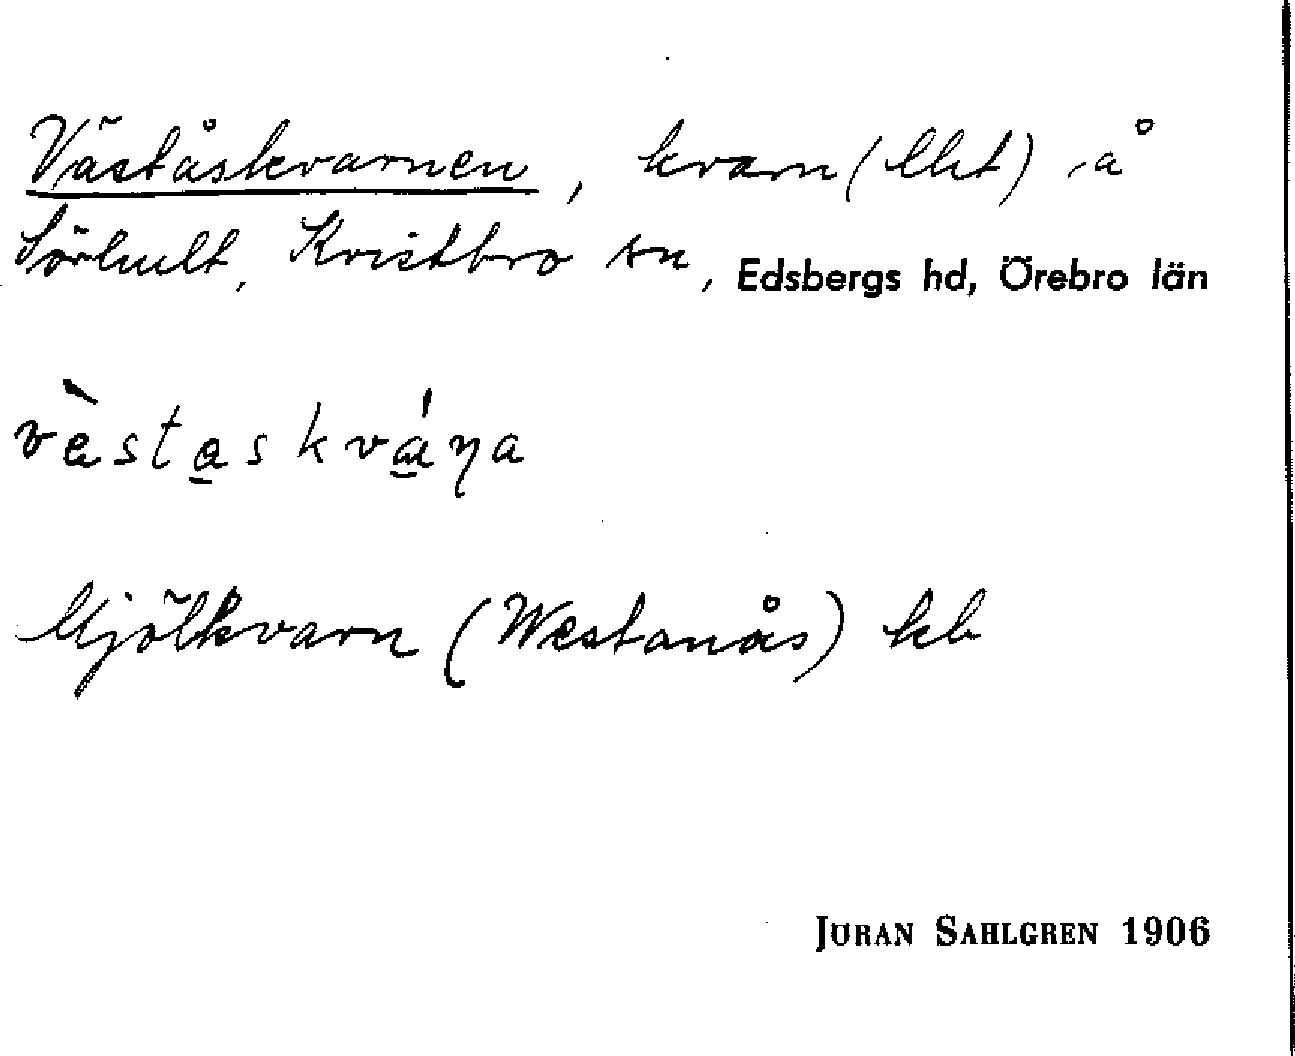 Väståskvarnen, kvarn (lht) å
Sörhult, Kristbro sn, Edsbergs hd, Örebro län
vàstaskváṇa
Mjölkvarn (Westanås) kb
JÖRAN SAHLGREN 1906